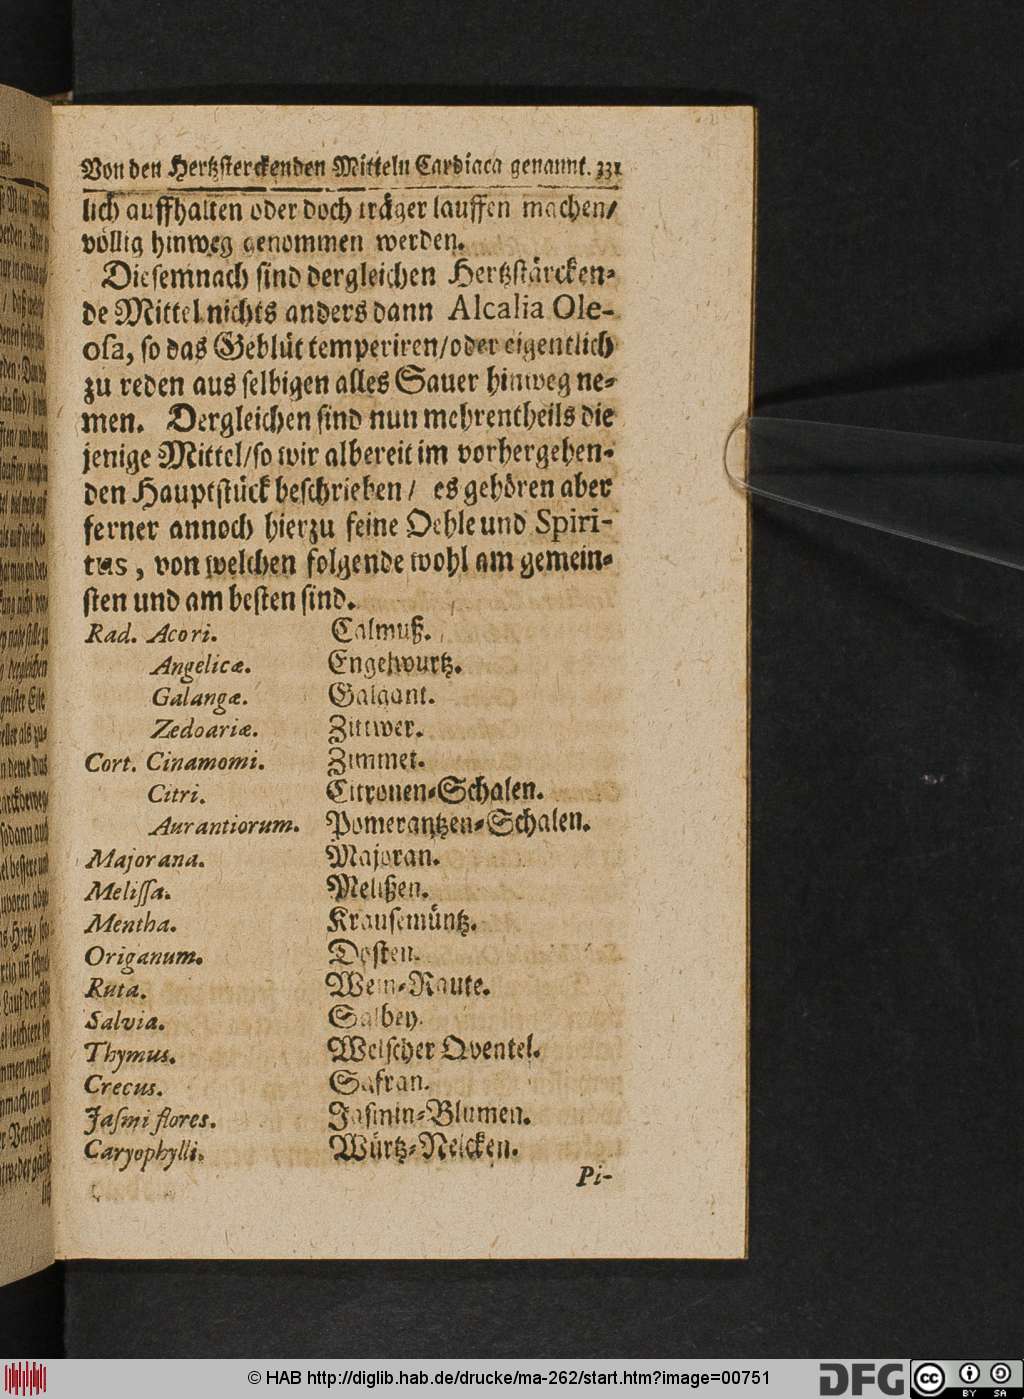 Von den Hertzsterckenden Mitteln Cardiaca genannt. 331
lich auffhalten oder doch träger lauffen machen/
völlig hinweg genommen werden.
Diesemnach sind dergleichen Hertzstärcken-
de Mittel nichts anders dann Alcalia Ole-
osa, so das Geblüt temperiren/oder eigentlich
zu reden aus selbigen alles Sauer hinweg ne-
men. Dergleichen sind nun mehrentheils die
jenige Mittel/so wir albereit im vorhergehen-
den Hauptstück beschrieben/ es gehören aber
ferner annoch hierzu feine Oehle und Spiri-
tus, von welchen folgende wohl am gemein-
sten und am besten sind.
Rad. Acori. Calmuß.
Angelicæ. Engelwurtz.
Galangæ. Galgant.
Zedoariæ. Zittwer.
Cort. Cinamomi. Zimmet.
Citri. Citronen-Schalen.
Aurantiorum. Pomerantzen-Schalen.
Majorana. Majoran.
Melissa. Melißen.
Mentha. Krausemüntz.
Origanum. Dosten.
Ruta. Wein-Raute.
Salvia. Salbey.
Thymus. Welscher Qventel.
Crecus. Safran.
Jasmi flores. Jasmin-Blumen.
Caryophylli. Würtz-Nelcken.
Pi-
© HAB http://diglib.hab.de/drucke/ma-262/start.htm?image=00751
DFG
cc BY SA